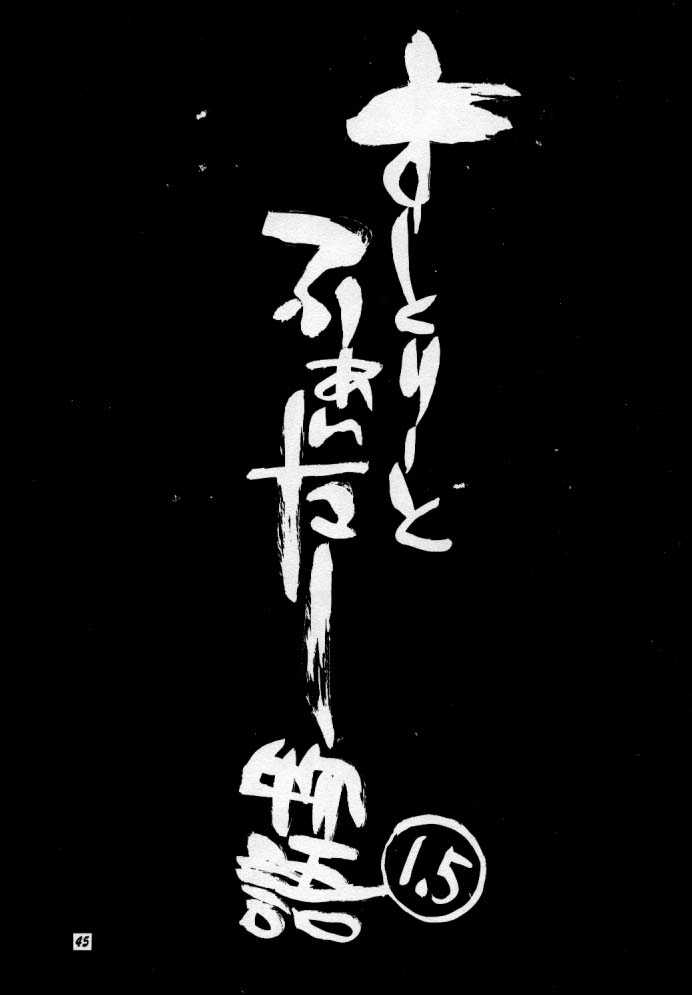 すーとりーと
ふぁいたー
物語
1.5
45